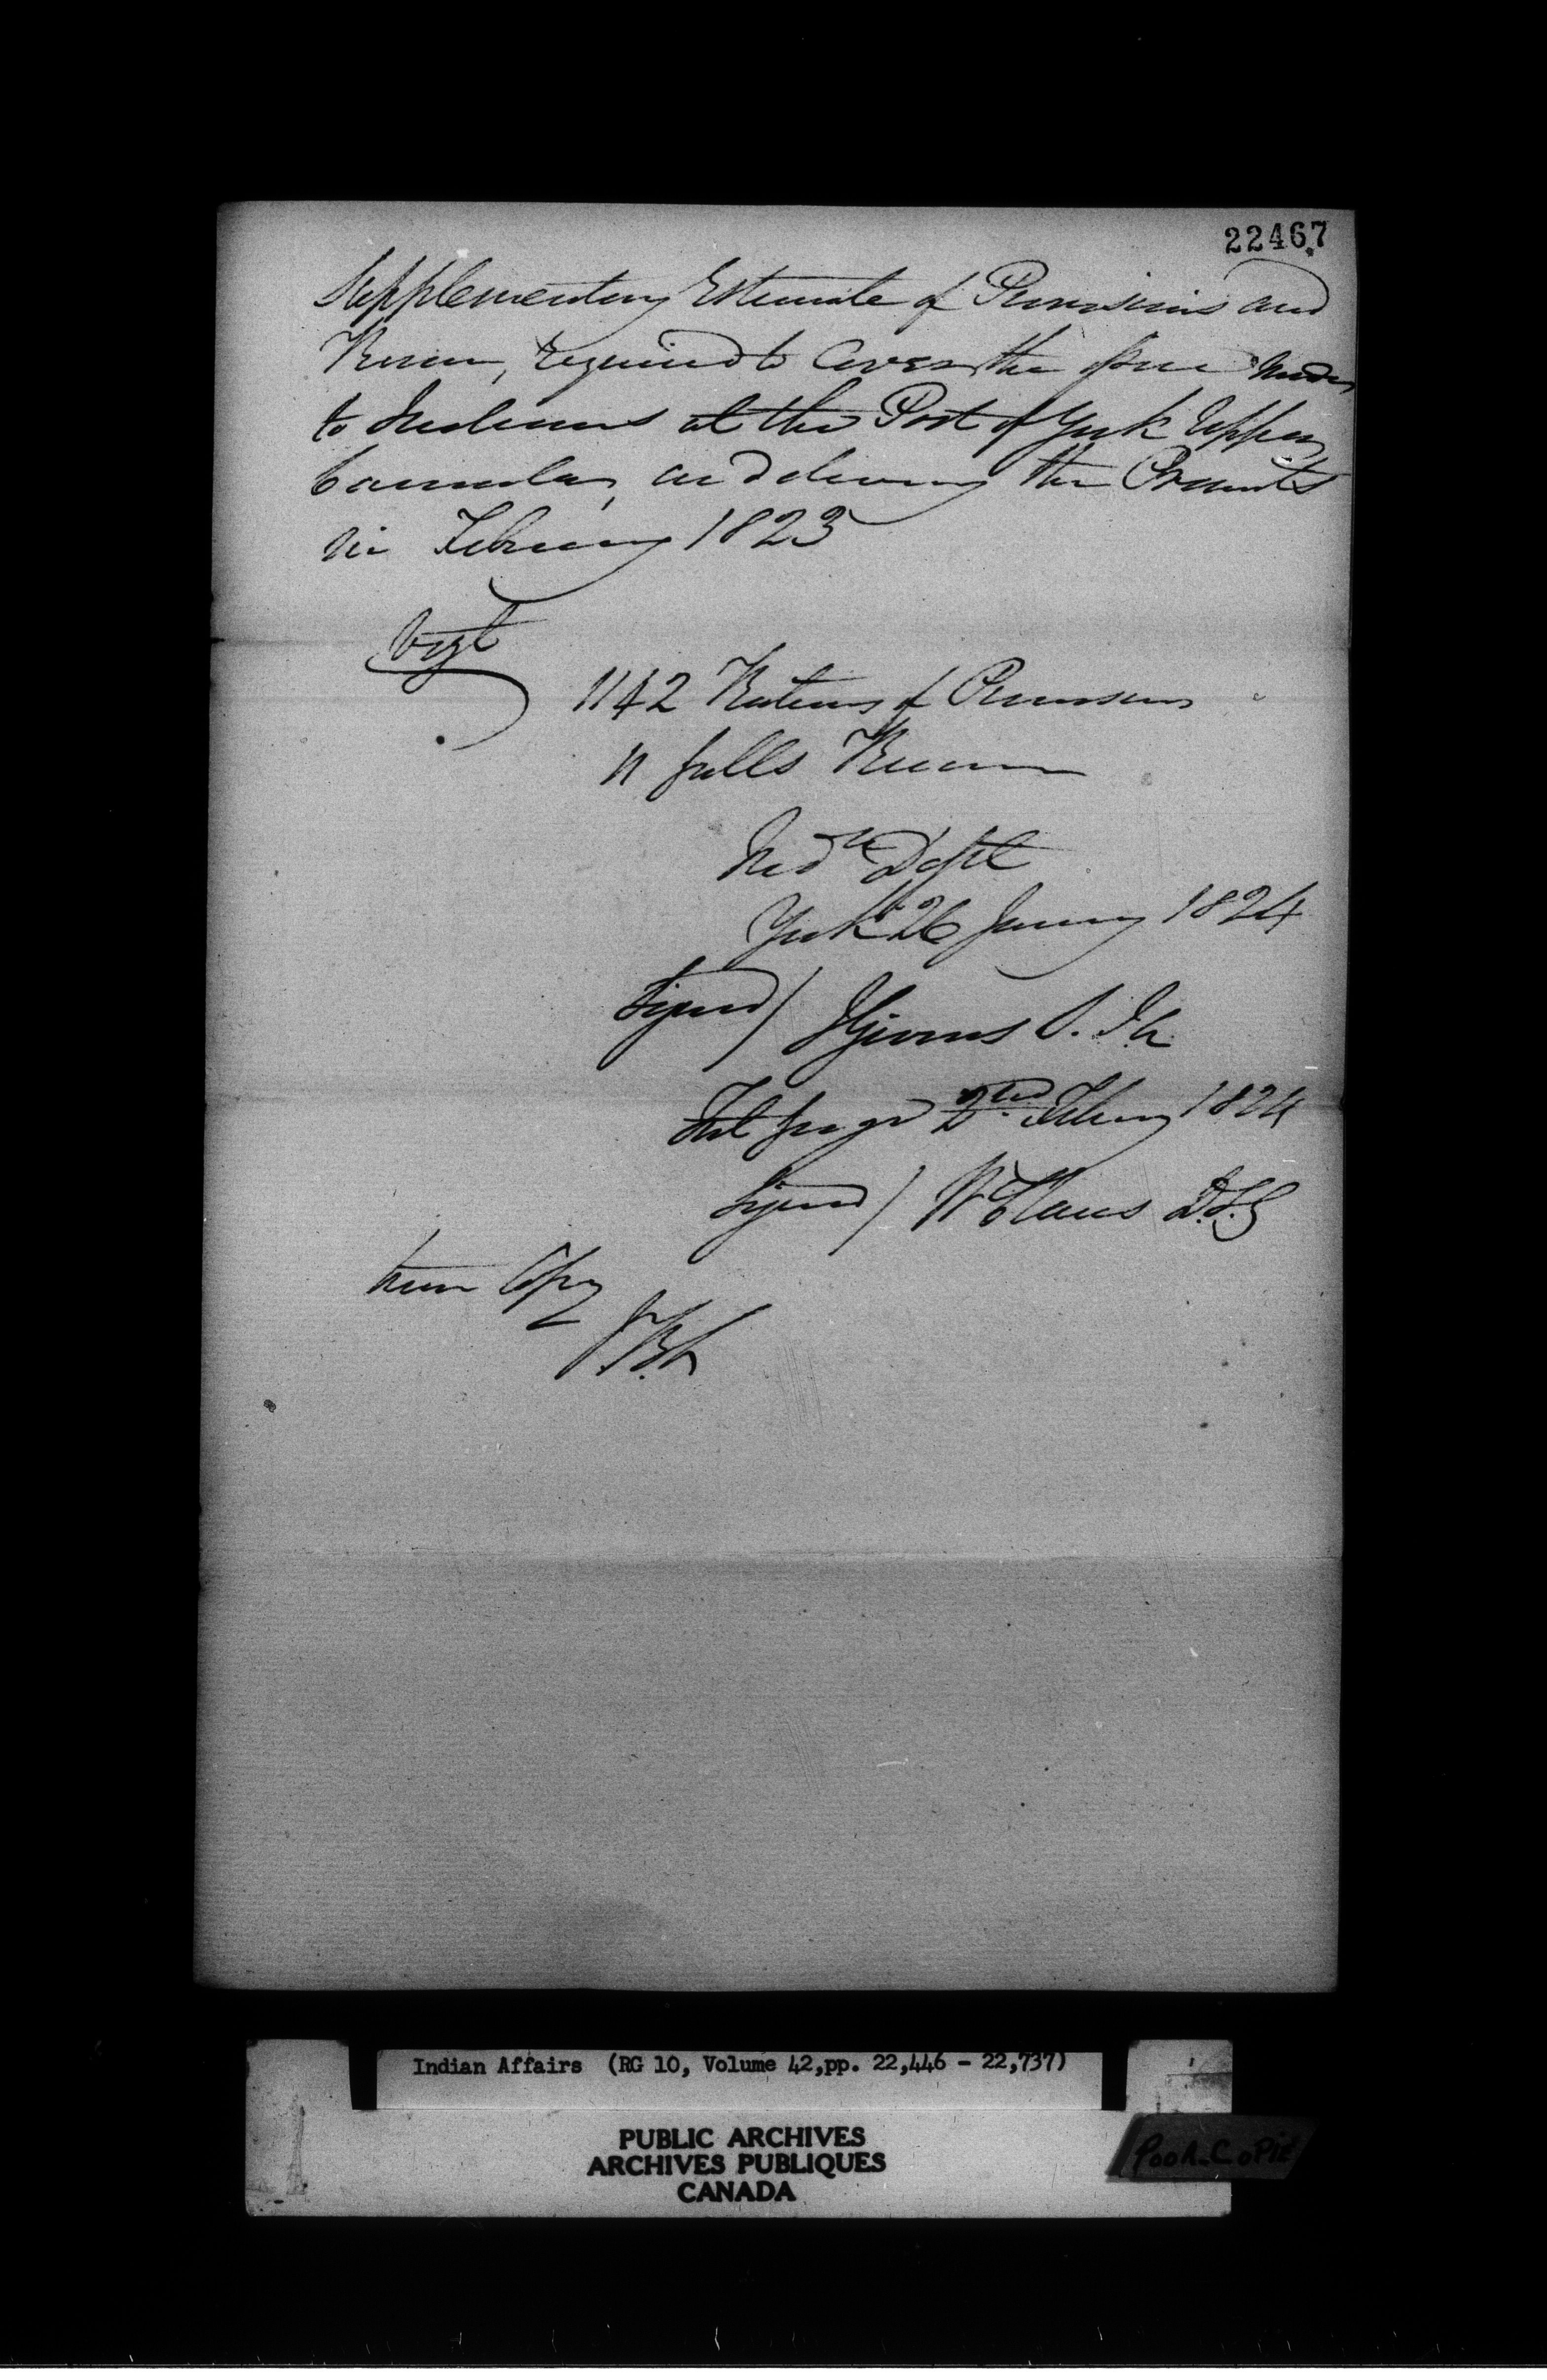 22467
Supplementary Estimate of Provisions and
Rum, required to Cover the Issue made
to Indians at the Post of York Upper
Canada, and drawing the Presents
in February 1823
Vizt
1142 Rations of Provisions
11 galls Rum
Indn Dept
York 26 January 1824
Signed / J Givins S. I. A
Fort George 2nd Febuary 1824
Signed / W Claus D.S.G
true Copy
J.B.C
Indian Affairs (RG 10, Volume 42,pp. 22,446 - 22,737)
PUBLIC ARCHIVES
ARCHIVES PUBLIQUES
CANADA
Poor-CoPie